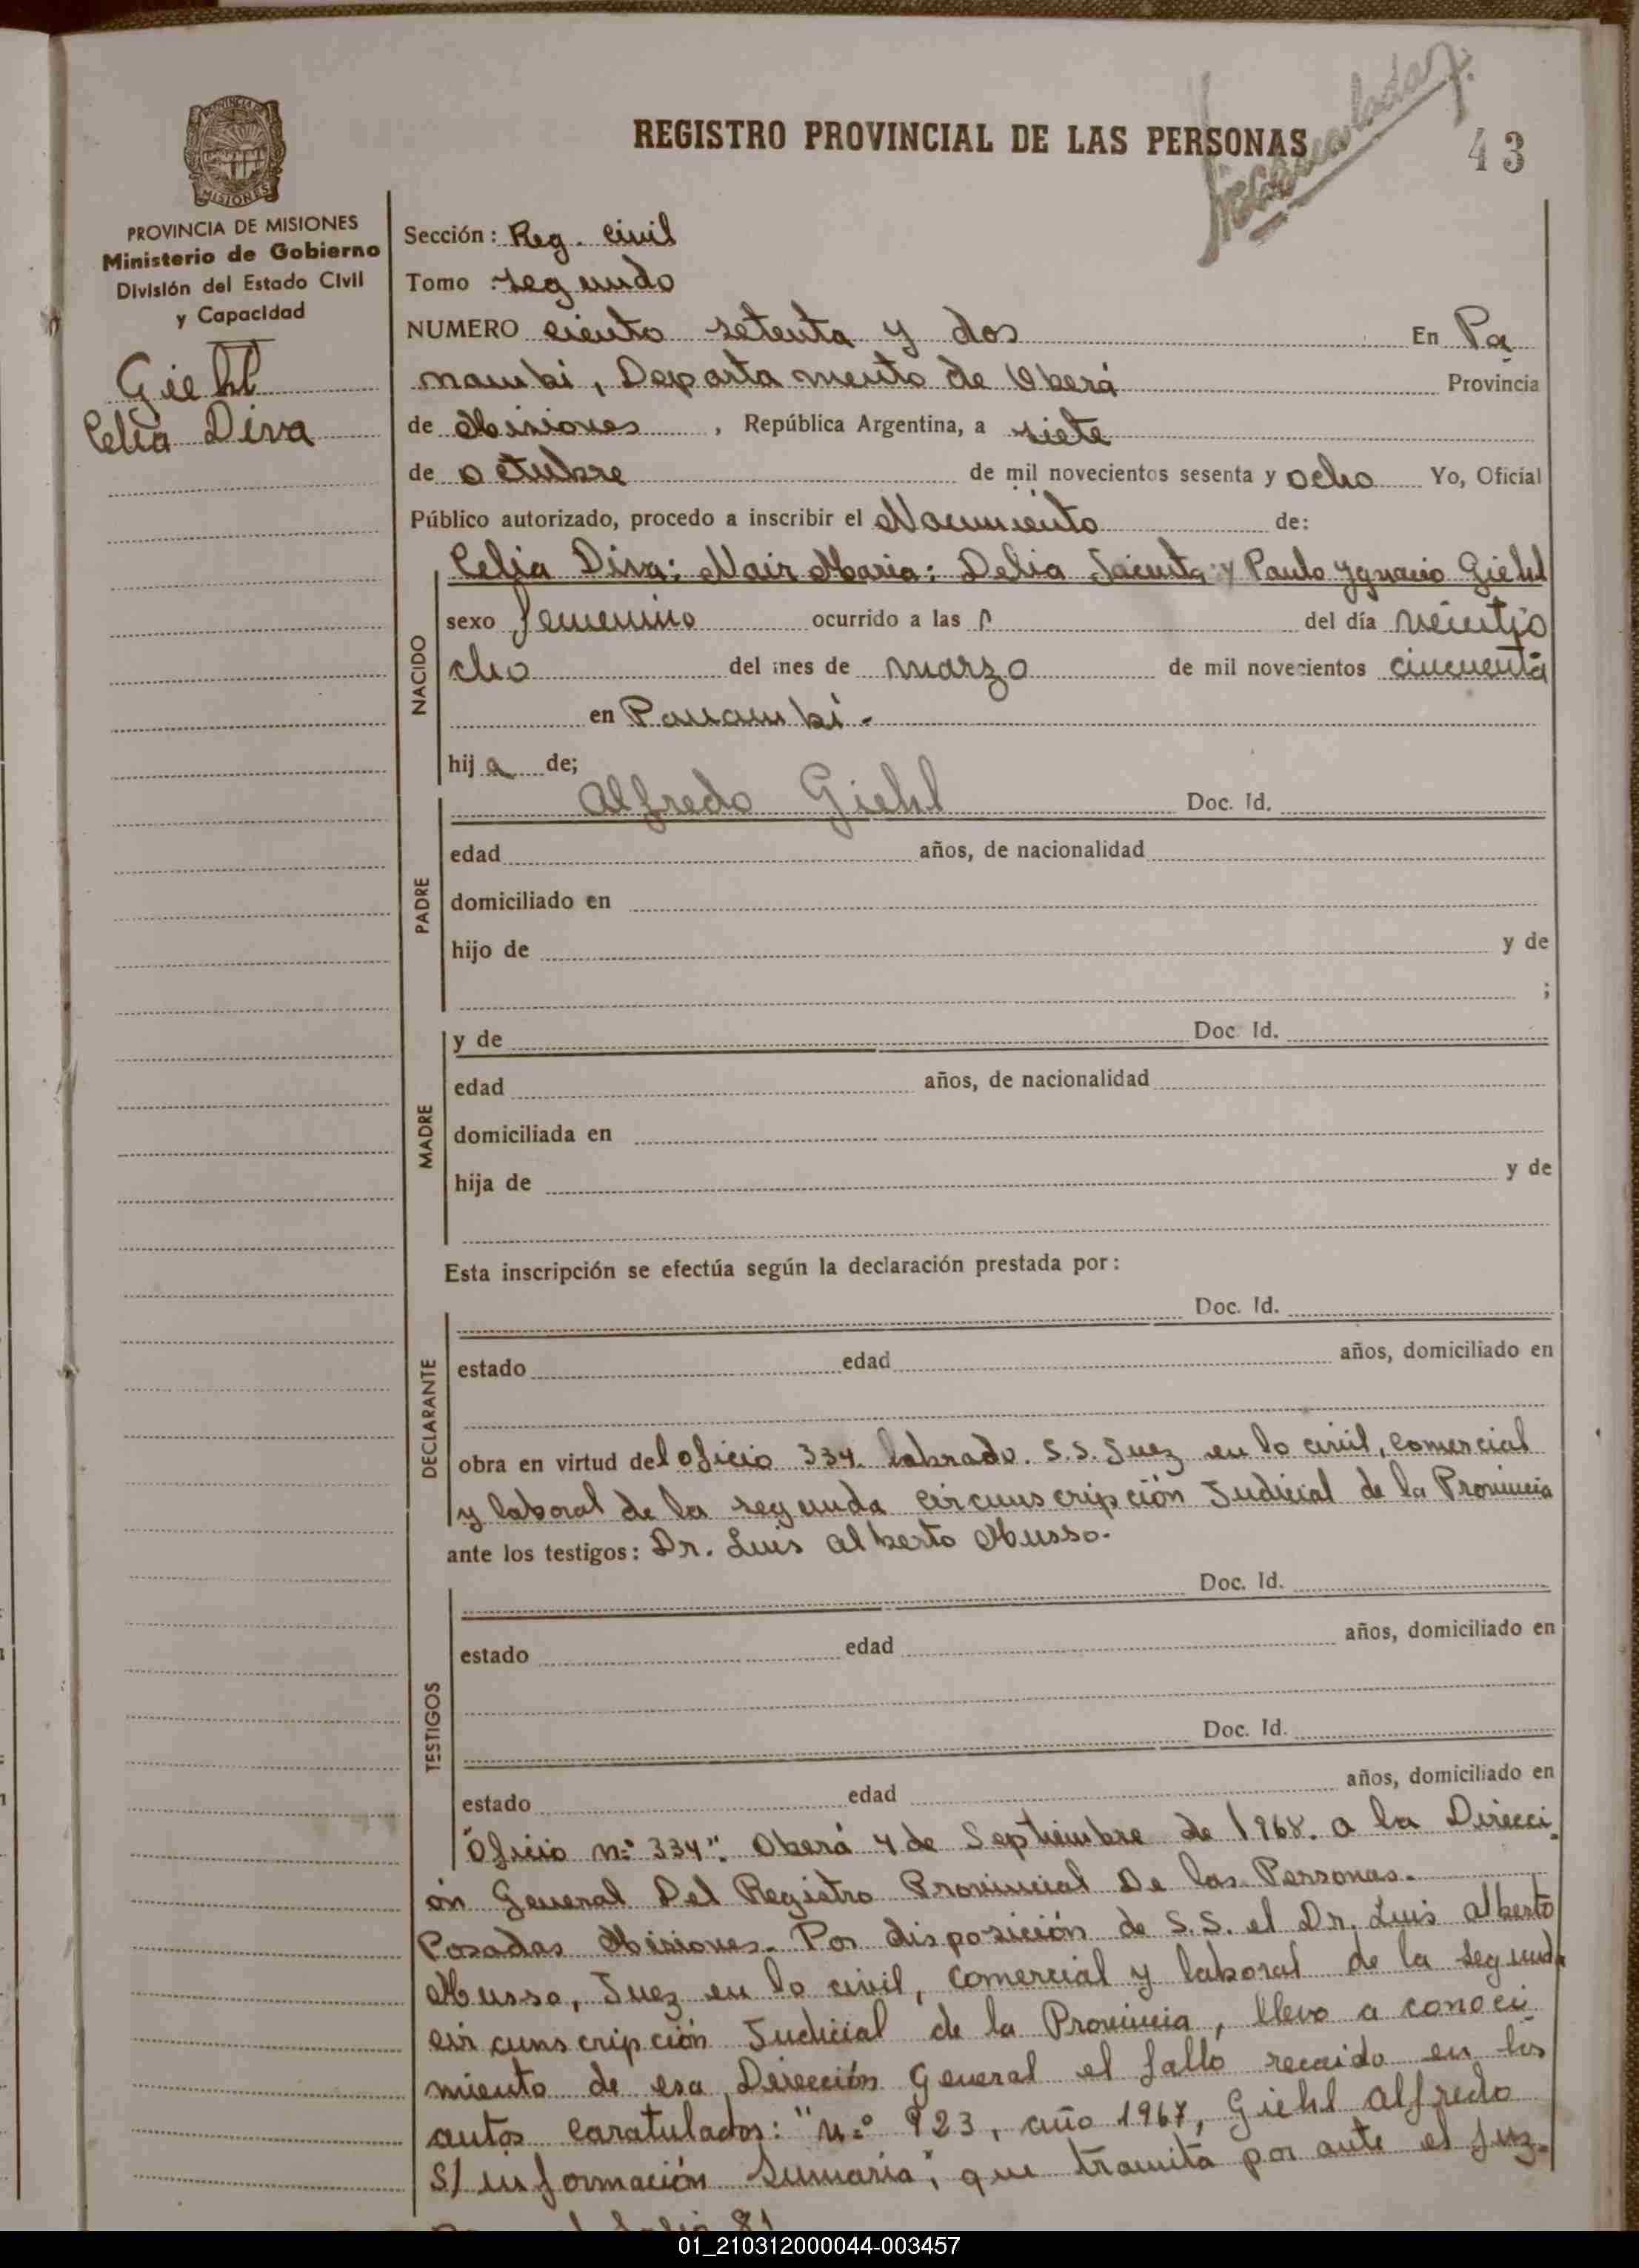 REGISTRO PROVINCIAL DE LAS PERSONAS
43
PROVINCIA DE MISIONES
PROVINCIA DE MISIONES
Ministerio de Gobierno
División del Estado Civil
y Capacidad
Giehl
Celia Diva
Sección: Reg. Civil
Tomo segundo
NUMERO ciento setenta y dos En Pa
nambi, Departamento de Oberá Provincia
de Misiones, República Argentina, a siete
de octubre de mil novecientos sesenta y ocho Yo, Oficial
Público autorizado, procedo a inscribir el Nacimiento de:
NACIDO
Celia Diva; Nair Maria; Delia Jacinta y Paulo Ygnacio Giehl
sexo femenino ocurrido a las del día veintio
cho del mes de marzo de mil novecientos cincuenta
en Panambi.
hija de;
PADRE
Alfredo Giehl Doc. Id.
edad años, de nacionalidad
domiciliado en
hijo de y de
;
MADRE
y de Doc. Id.
edad años, de nacionalidad
domiciliada en
hija de y de
Esta inscripción se efectúa según la declaración prestada por:
DECLARANTE
Doc. Id.
estado edad años, domiciliado en
obra en virtud del oficio 334. labrado. S.S. Juez en lo civil, comercial
y laboral de la segunda circunscripción Judicial de la Provincia
ante los testigos: Dr. Luis Alberto Musso.
TESTIGOS
Doc. Id.
estado edad años, domiciliado en
Doc. Id.
estado edad años, domiciliado en
"Oficio n:° 334": Oberá 4 de Septiembre de 1968. a la Direcci
ón General Del Registro Provincial De las Personas.
Posadas Misiones. Por disposición de S.S. el Dr. Luis Alberto
Musso, Juez en lo civil, comercial y laboral de la segunda
circunscripción Judicial de la Provincia, llevo a conoci
miento de esa Dirección General el fallo recaido en los
autos caratulados: "n:° 923, año 1967, Giehl Alfredo
S/ información Sumaria", que tramita por ante el juz-
01_210312000044-003457